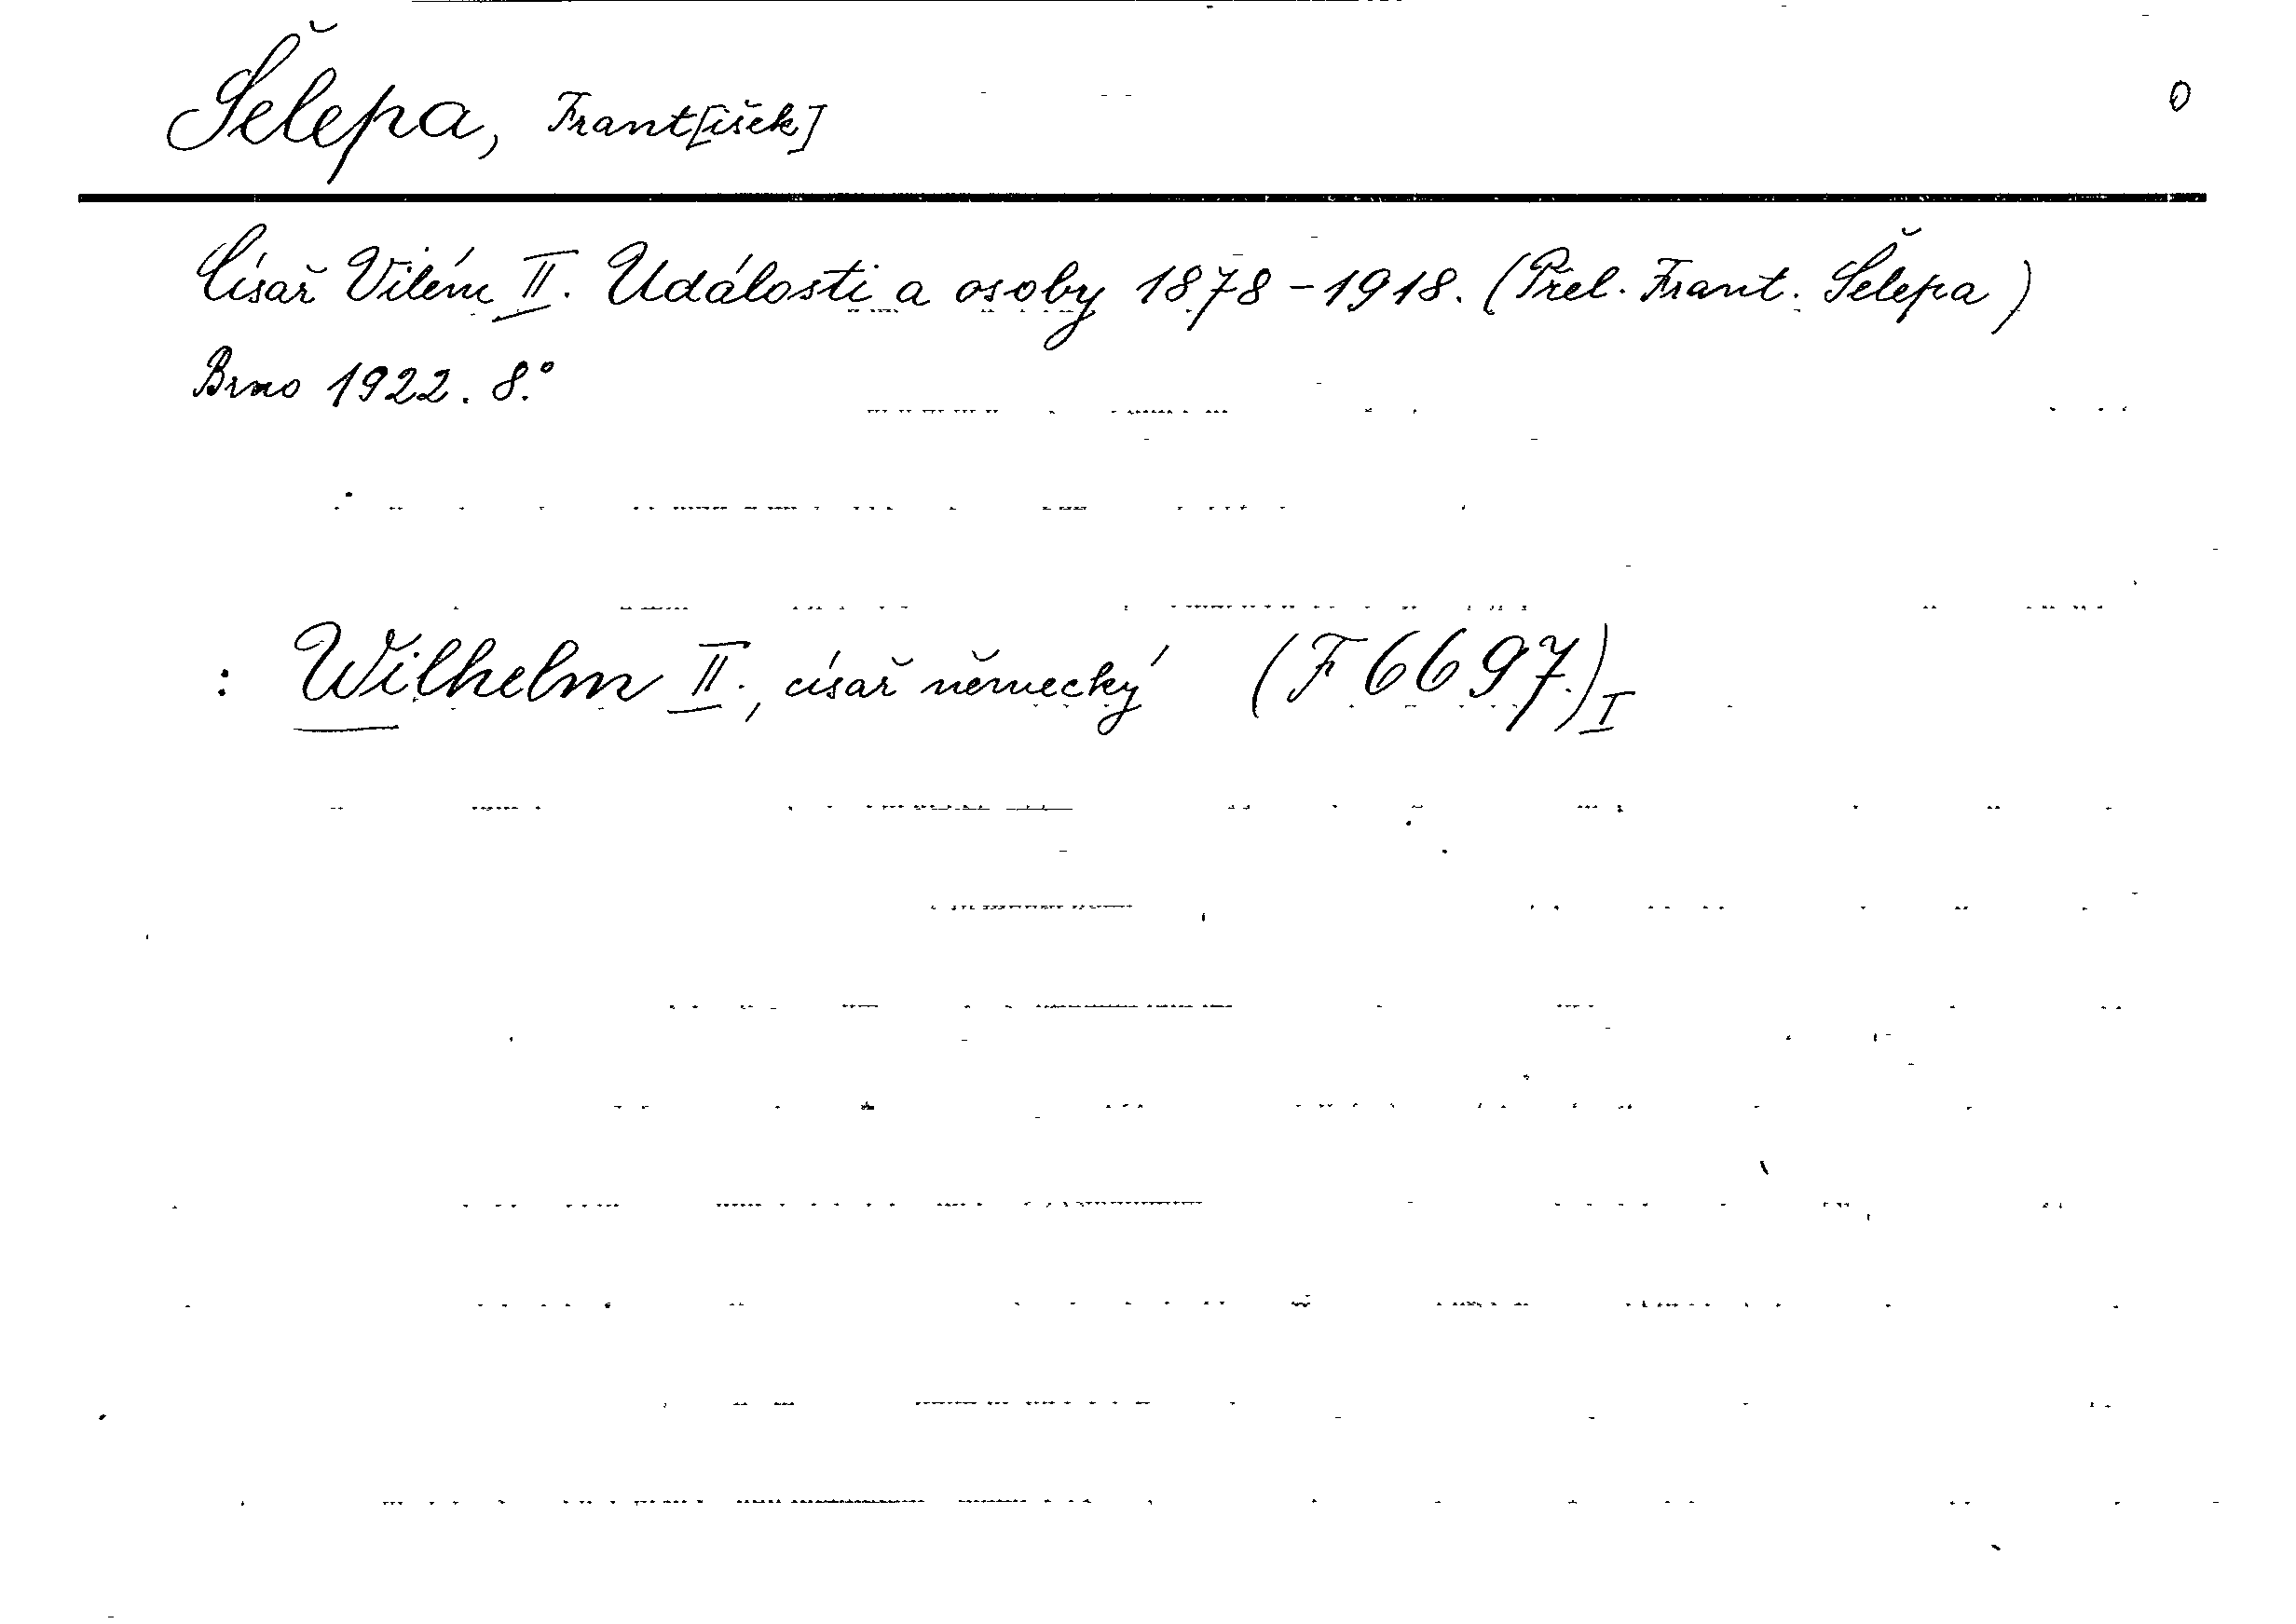 Šelepa, Frant[išek] 0
Císař Vilém II. Události a osoby 1878-1918. (Přel. Frant. Šelepa)
Brno 1922. 8.°
: Wilhelm II., císař německý (F 6697.) I